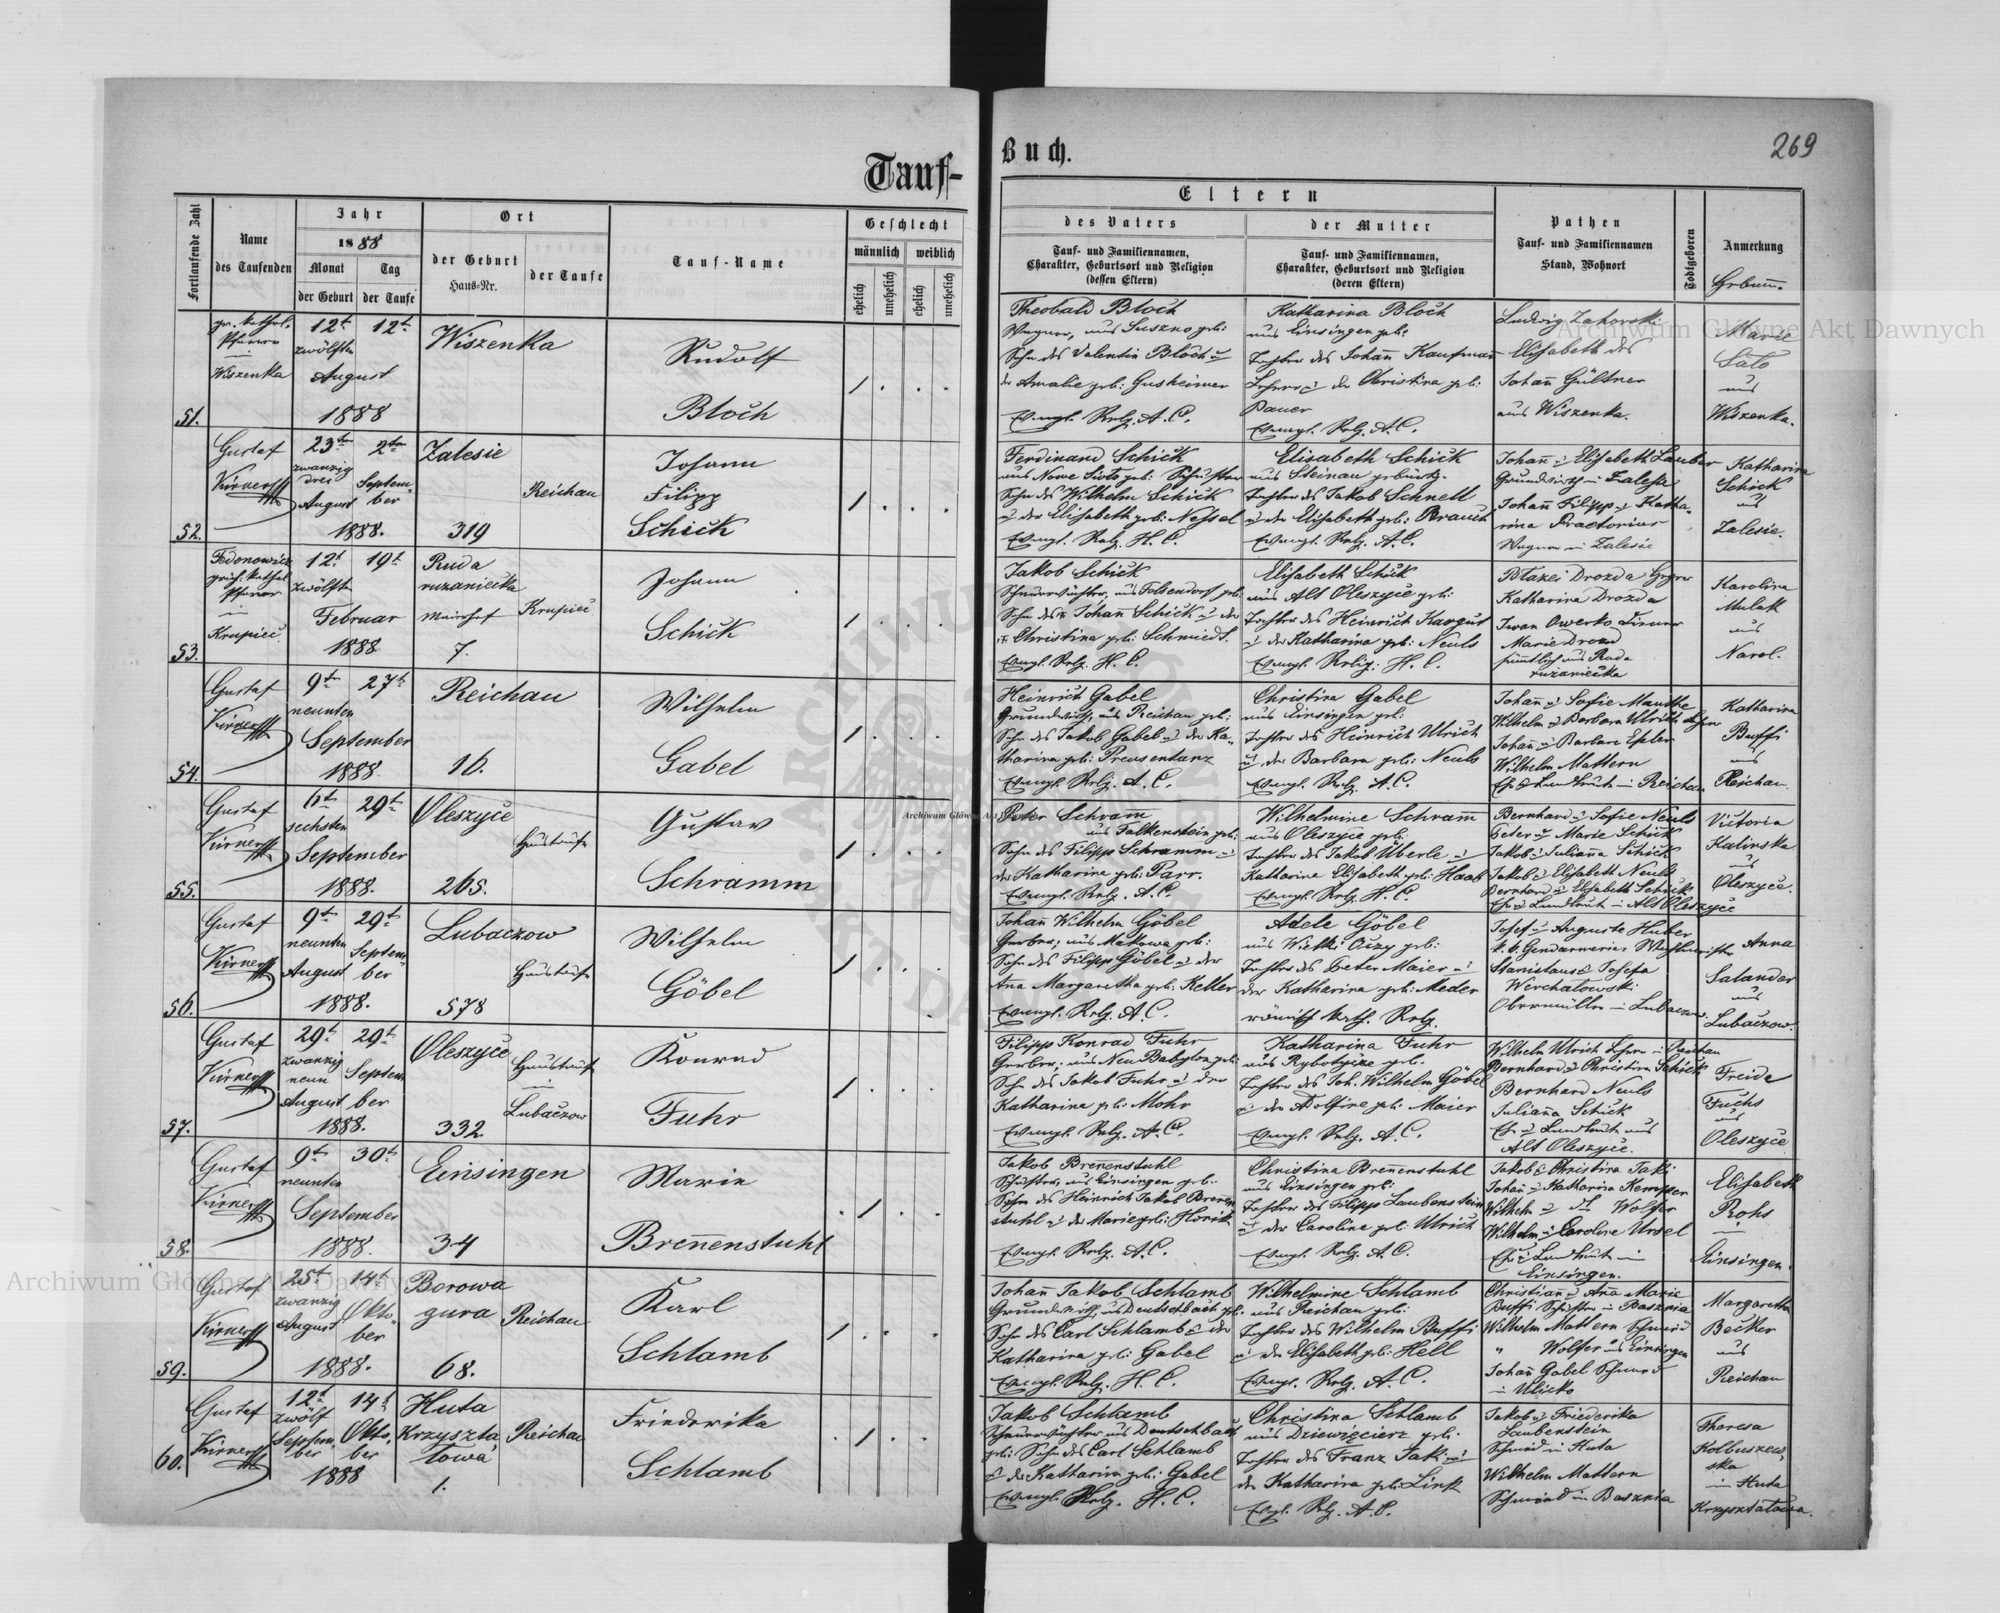 Tauf-
Buch.
269
Fortlaufende Zahl
Name
des Taufenden
Jahr
1888
Monat
der Geburt
Tag
der Taufe
Ort
der Geburt
Haus-Nr.
der Taufe
Tauf-Name
Geschlecht
männlich
weiblich
ehelich
unehelich
ehelich
unehelich
Eltern
des Vaters
Tauf- und Familiennamen,
Charakter, Geburtsort und Religion
(dessen Eltern)
der Mutter
Tauf- und Familiennamen,
Charakter, Geburtsort und Religion
(deren Eltern)
Pathen
Tauf- und Familiennamen
Stand, Wohnort
Todtgeboren
Anmerkung
Hebamm.
51.
Wiszenka
12t 12t
zwölften
August
1888
Wiszenka
Rudolf
Bloch
Theobald Bloch
Wagner, aus Suszno geb:
Sohn des Valentin Bloch u
der Amalie geb: Gusheimer
Evangl. Relg. A. C.
Katharina Bloch
aus Einsingen geb:
Tochter des Johann Kaufmann
Lehrer u der Christina geb:
Bauer
Evangl. Relg. A.C.
Ludwig Zahorski
Elisabeth des
Johann Gültner
aus Wiszenka.
Marie
Sato
aus
Wiszenka.
52.
Gustaf
23ten 2ten
zwanzig
drei
August
Septem-
ber
1888.
Zalesie
319
Reichau
Johann
Filipp
Schick
Ferdinand Schick
aus Nowe Sioło geb: Schuster
Sohn des Wilhelm Schick
u der Elisabeth geb: Nessel
Evangl. Relg. H. C.
Elisabeth Schick
aus Steinau gebürtig.
Tochter des Jakob Schnell
u der Elisabeth geb: Brauch
Evangl. Relg. A.C.
Johann u Elisabeth Lauber
Grundwirth in Zalesie
Johann Filipp u Katha-
rina Praetorius
Wagner in Zalesie
Katharina
Schick
aus
Zalesie.
53.
Fedonowicz
Pfarrer
in
Krupiec.
12t 19t
zwölften
Februar
1888
Ruda
ruzaniecka
Meierhof
7.
Krupiec
Johann
Schick
Jakob Schick
Sohn des Johann Schick u der
Christina geb: Schmiedt.
Evangl. Relg. H. C.
Elisabeth Schick
aus Alt Oleszyce geb:
Tochter des Heinrich Kargus
u der Katharina geb: Neuls
Evangl. Relig: H. C.
Błazei Drozda
Katharina Drozda
Iwan Owerko
Marie Drozd
sämmtlich aus Ruda
ruzaniecka
Karolina
Mulak
aus
Narol.
54.
Gustaf
9ten 27t
neunten
September
1888.
Reichau
16.
Wilhelm
Gabel
Heinrich Gabel
Grundwirth, aus Reichau geb:
Sohn des Jakob Gabel u der Ka-
tharina geb: Preusentanz
Evangl. Relg. A. C.
Christina Gabel
aus Einsingen geb:
Tochter des Heinrich Ulrich
u der Barbara geb: Neuls
Evangl. Relg. A. C.
Johann u Sofie Manthe
Wilhelm u Barbara Ulrich Lehrer
Johann u Barbara Epler
Wilhelm Mattern
Ehe u Landleute in Reichau
Katharina
Buffi
aus
Reichau.
55.
Gustaf
6ten 29t
sechsten
September
1888.
Oleszyce
265.
Haustaufe
Gustav
Schramm
Peter Schramm
aus Falkenstein geb:
Sohn des Filipp Schramm u
der Katharina geb: Parr.
Evangl. Relg. A. C.
Wilhelmine Schramm
aus Oleszyce geb:
Tochter des Jakob Überle u
Katharina Elisabeth geb: Haab
Evangl. Relg. H. C.
Bernhard u Sofie Neuls
Peter u Marie Schick
Jakob u Julianna Schick
Jakob u Elisabeth Neuls
Bernhard u Elisabeth Schick
Ehe u Landleute in Alt Oleszyce
Victoria
Kalinska
aus
Oleszyce.
56.
Gustaf
9ten 29t
neunten
August
Septem-
ber
1888.
Lubaczow
578
Haustaufe
Wilhelm
Göbel
Johann Wilhelm Göbel
Gerber, aus Makowa geb:
Sohn des Filipp Göbel u der
Ana Margaretha geb: Keller
Evangl. Relg. A. C.
Adele Göbel
Tochter des Peter Maier u
der Katharina geb: Meder
römisch kath. Relg.
Josef u Auguste Huber
k. k. Gendarmerie Wachtmeister
Stanislaus u Josefa
Werchalowski
Obermüller in Lubaczow
Anna
Salander
aus
Lubaczow.
57.
Gustaf
29t 29t
zwanzig
neun
August
Septem-
ber
1888.
Oleszyce
332
Haustaufe
in
Lubaczow
Konrad
Fuhr
Filipp Konrad Fuhr
Gerber, aus Neu Babylon geb:
Sohn des Jakob Fuhr u der
Katharina geb: Mohr
Evangl. Relg. A. C.
Katharina Fuhr
Tochter des Joh. Wilhelm Göbel
u der Adolfine geb: Maier
Evangl. Relg. A. C.
Wilhelm Ulrich Lehrer in Reichau
Bernhard u Christina Schick
Bernhard Neuls
Julianna Schick
Ehe u Landleute aus
Alt Oleszyce.
Freide
Fuchs
aus
Oleszyce
58.
Gustaf
9t 30t
neunten
September
1888.
Einsingen
34
Marie
Brennenstuhl
Jakob Brenenstuhl
Schuster, aus Einsingen geb:
Sohn des Heinrich Jakob Brenen
stuhl u der Marie geb: Horik
Evangl. Relg. A. C.
Christina Brenenstuhl
aus Einsingen geb:
Tochter des Filipp Laubenstein
u der Caroline geb: Ulrich
Evangl. Relg. A. C.
Jakob u Christina Jaki
Johann u Katharina Kemper
Wilhelm u Wolfer
Wilhelm u Caroline Ursel
Ehe u Landleute in
Einsingen.
Elisabeth
Rohs
in
Einsingen.
59.
Gustaf
25t 14t
zwanzig
August
Okto-
ber
1888.
Borowa
gura
68.
Reichau
Karl
Schlamb
Johann Jakob Schlamb
Grundwirth, aus Deutschbach geb.
Sohn des Carl Schlamb u der
Katharina geb: Gabel
Evangl. Relg. H. C.
Wilhelmine Schlamb
aus Reichau geb:
Tochter des Wilhelm Buffi
u der Elisabeth geb: Hell
Evangl. Relg. A. C.
Christian u Ana Marie
Buffi Schuster in Basznia
Wilhelm Mattern Schmied
" Wolfer aus Einsingen
Johann Gabel Schmied
in Ulicko
Margaretha
Becker
aus
Reichau
60.
Gustaf
12t 14t
zwölf
Septem-
ber
Okto-
ber
1888
Huta
Krzyszta
towa
1.
Reichau
Friederika
Schlamb
Jakob Schlamb
geb: Sohn des Carl Schlamb
u der Katharina geb: Gabel
Evangl. Relg. H. C.
Christina Schlamb
aus Dziewięcierz geb:
Tochter des Franz Jaki u
der Katharina geb: Link
Evgl. Relg. A. C.
Jakob u Friederika
Laubenstein
Schmied in Huta
Wilhelm Mattern
Schmied in Basznia
Theresa
Kolbuszew-
ska
in Huta
Krzysztatowa.
Archiwum Główne Akt Dawnych
Archiwum Główne Akt Dawnych
Archiwum Główne Akt Dawnych